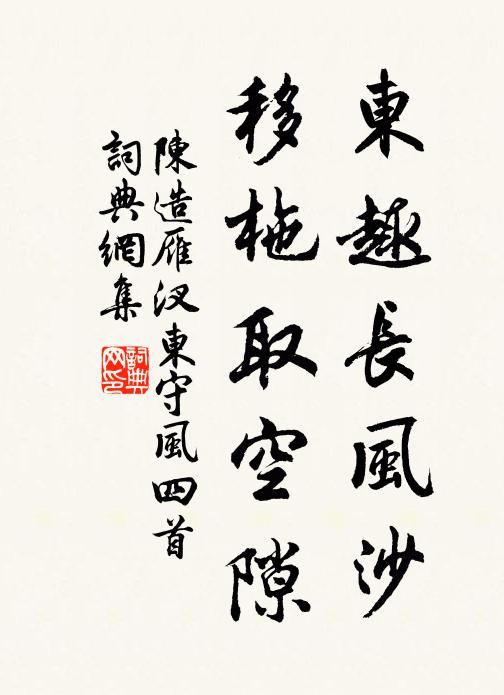 東趣長風沙
移柂取空隙
陳造雁汊東守風四首
詞典網集
詞典網印